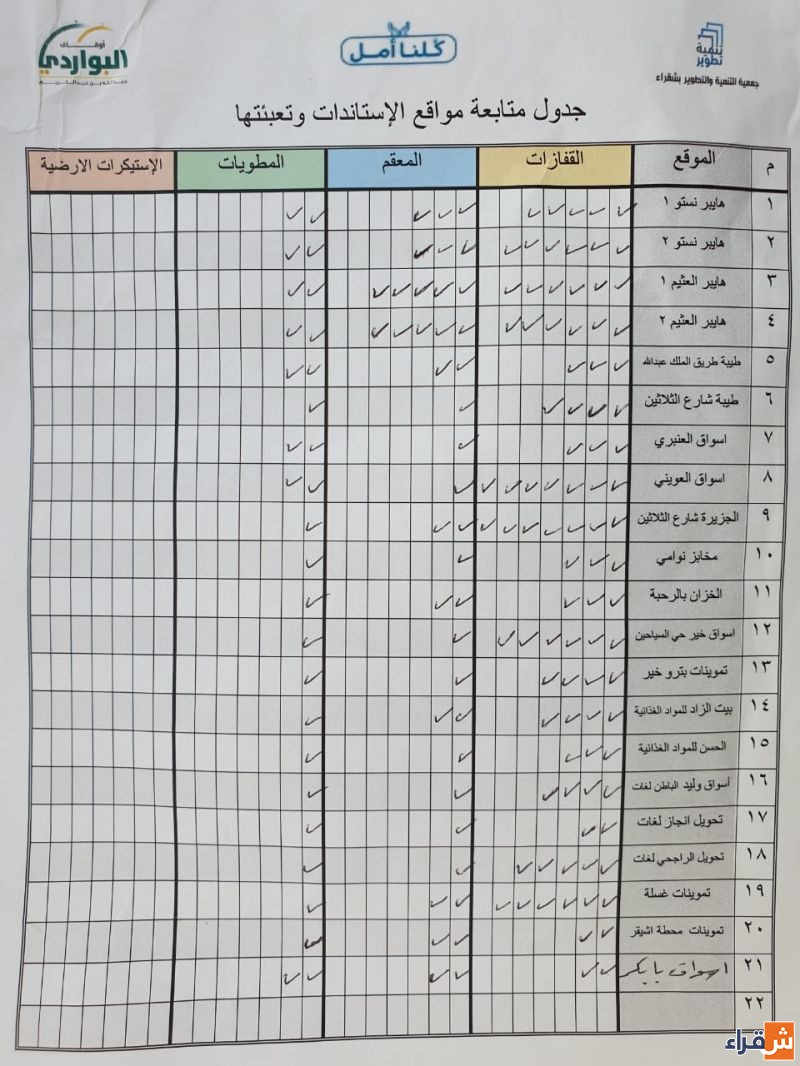 أوقاف
البواردي
كلنا أمل
تنمية
تطوير
جمعية التنمية والتطوير بشقراء
جدول متابعة مواقع الإستاندات وتعبئتها
م الموقع القفازات المعقم المطويات الإستيكرات الارضية
١ هايبر نستو ١ ✓✓✓✓✓ ✓✓✓ ✓✓
٢ هايبر نستو ٢ ✓✓✓✓✓✓ ✓✓✓ ✓✓
٣ هايبر العثيم ١ ✓✓✓✓✓✓ ✓✓✓✓✓ ✓✓
٤ هايبر العثيم ٢ ✓✓✓✓✓✓ ✓✓✓✓✓ ✓✓
٥ طيبة طريق الملك عبدالله ✓✓✓ ✓✓ ✓✓
٦ طيبة شارع الثلاثين ✓✓✓✓ ✓ ✓
٧ اسواق العنبري ✓✓✓ ✓ ✓✓
٨ اسواق العويني ✓✓✓✓✓✓✓ ✓ ✓✓
٩ الجزيرة شارع الثلاثين ✓✓✓✓✓✓✓ ✓✓ ✓
١٠ مخابز نوامي ✓✓✓ ✓ ✓
١١ الخزان بالرحبة ✓✓✓ ✓✓ ✓
١٢ اسواق خير حي السياحين ✓✓✓✓✓✓ ✓ ✓
١٣ تموينات بترو خير ✓✓✓✓ ✓ ✓
١٤ بيت الزاد للمواد الغذائية ✓✓✓✓ ✓✓ ✓
١٥ الحسن للمواد الغذائية ✓✓✓ ✓ ✓
١٦ أسواق وليد الباطن لغات ✓✓✓✓ ✓ ✓
١٧ تحويل انجاز لغات ✓✓ ✓ ✓
١٨ تحويل الراجحي لغات ✓✓✓✓✓ ✓ ✓
١٩ تموينات غسلة ✓✓✓✓✓✓ ✓✓ ✓
٢٠ تموينات محطة اشيقر ✓✓ ✓✓ ✓
٢١ اسواق بابكر ✓✓ ✓✓ ✓✓
٢٢
شقراء